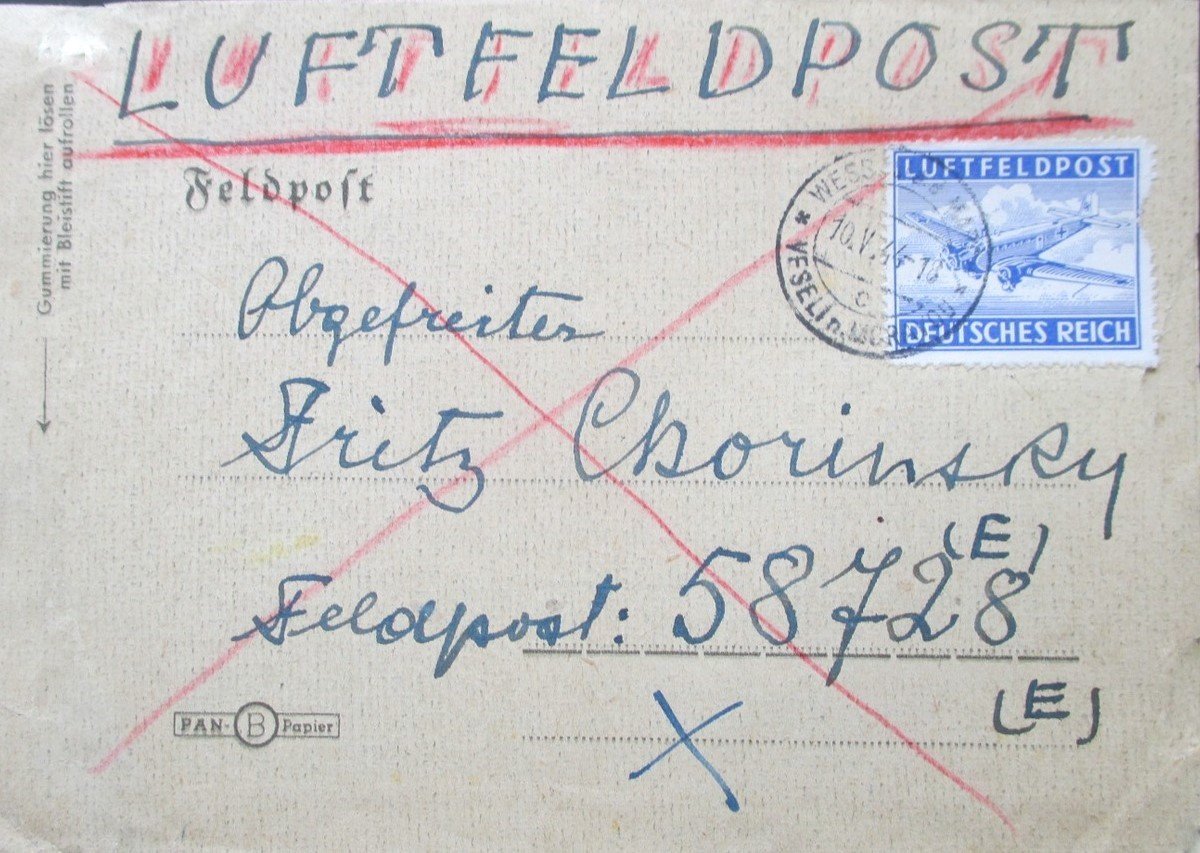 LUFTFELDPOST
Gummierung hier lösen
mit Bleistift aufrollen
Feldpost
LUFTFELDPOST
DEUTSCHES REICH
10.V.44
VESELI n. MOR
Obgefreiter
Fritz Chorinsky
(E)
Feldpost: 58728
(E)
PAN- B Papier